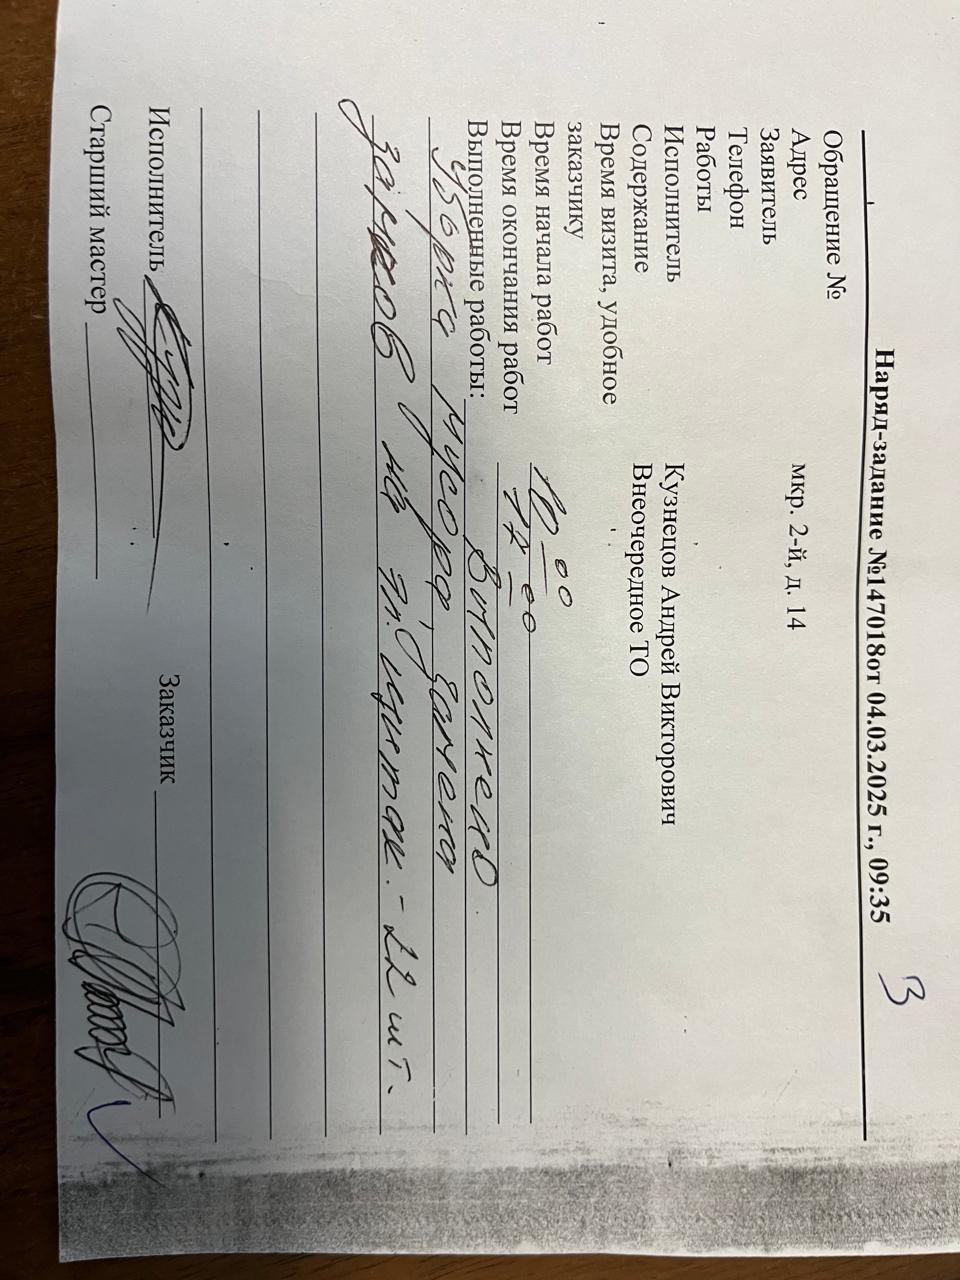 3
Наряд-задание №147018от 04.03.2025 г., 09:35
Обращение №
Адрес мкр. 2-й, д. 14
Заявитель
Телефон
Работы
Исполнитель Кузнецов Андрей Викторович
Содержание Внеочередное ТО
Время визита, удобное
заказчику
Время начала работ 10-00
Время окончания работ 17-00
Выполненные работы: Выполнено
уборка мусора, замена
замков на эл. щитах. - 22 шт.
Исполнитель Заказчик
Старший мастер